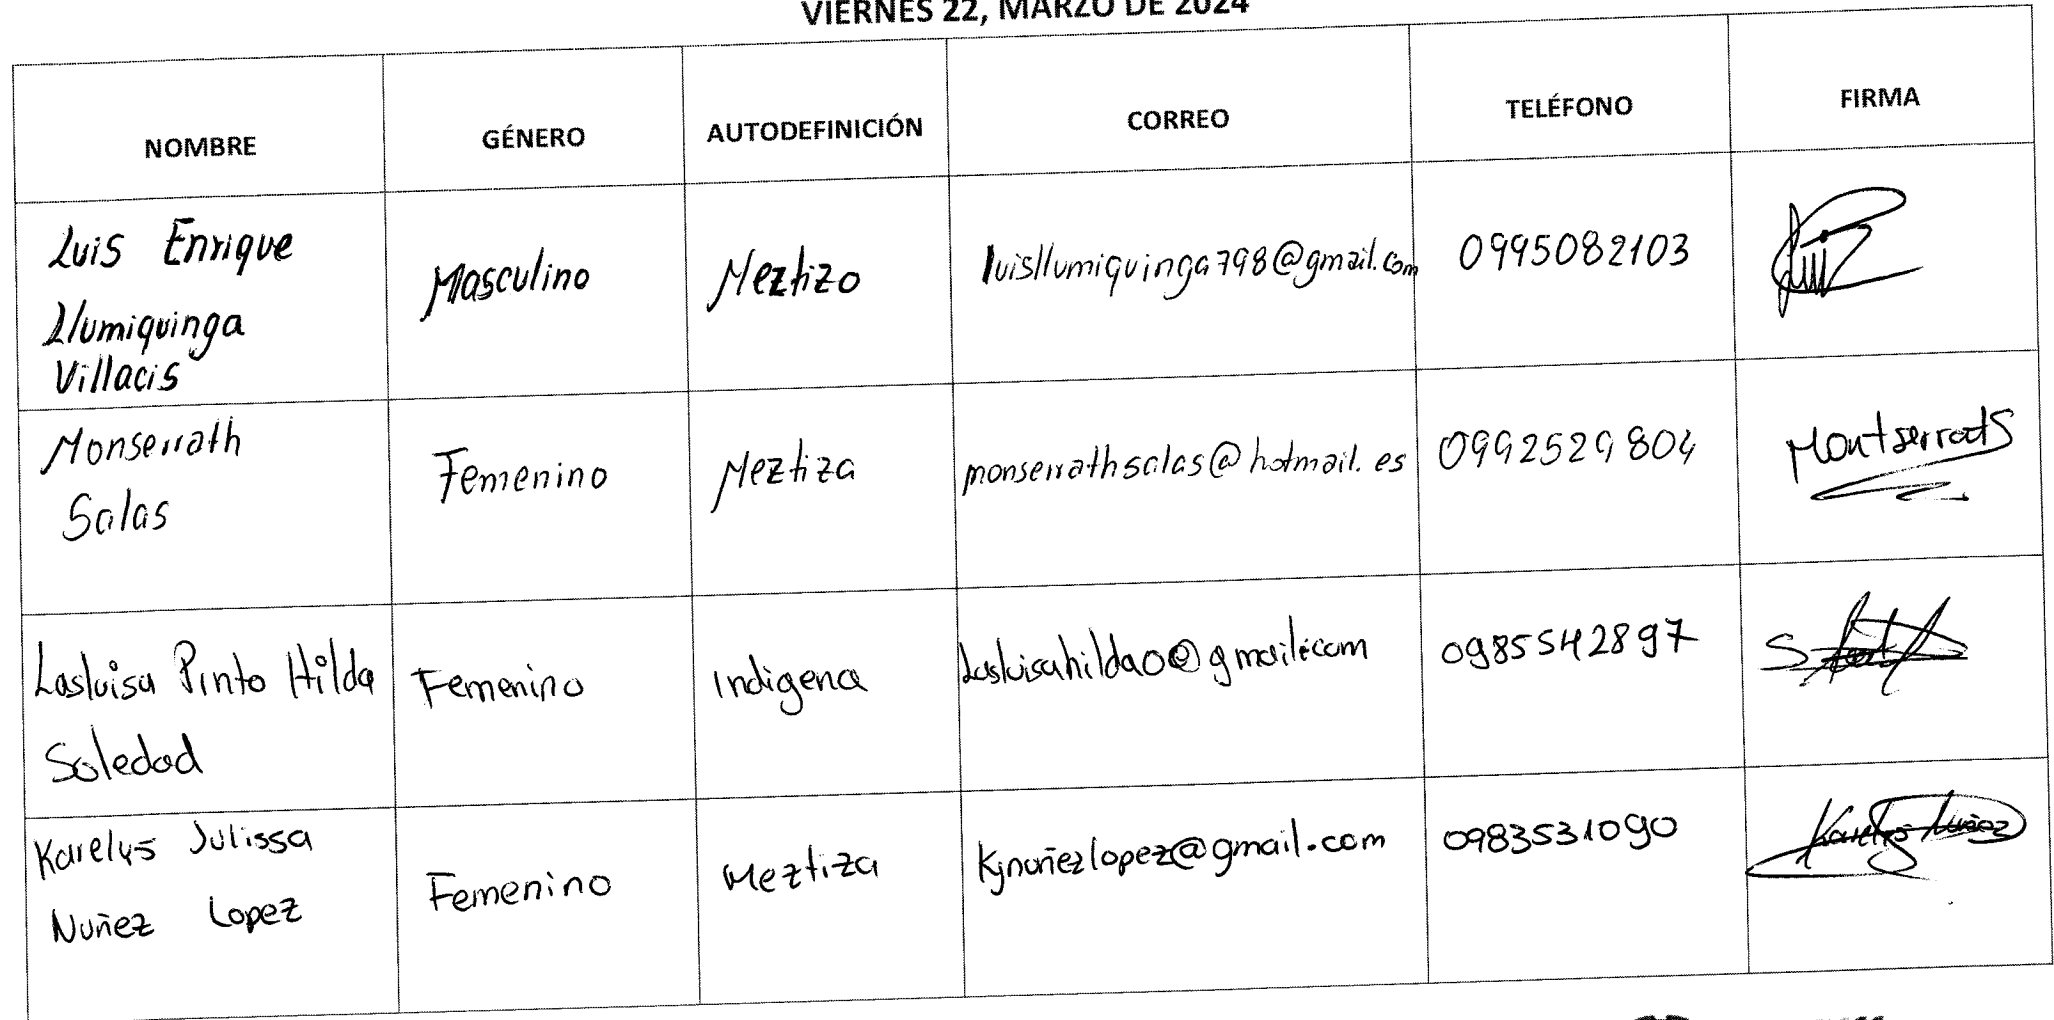 VIERNES 22, MARZO DE 2024
NOMBRE GÉNERO AUTODEFINICIÓN CORREO TELÉFONO FIRMA
Luis Enrique
Llumiquinga
Villacis
Masculino
Meztizo
luisllumiquinga798@gmail.com
0995082103
Luis
Monserrath
Salas
Femenino
Meztiza
monserrathsalas@hotmail.es
0992529804
MontserratS
Lasluisa Pinto Hilda
Soledad
Femenino
Indigena
Lasluisahilda0@gmail.com
0985542897
Karelys Julissa
Nuñez Lopez
Femenino
Meztiza
Kjnuñezlopez@gmail.com
0983531090
Karelys Nuñez